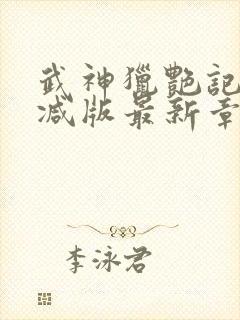 武神獵艷記
减版最新章
李泳君